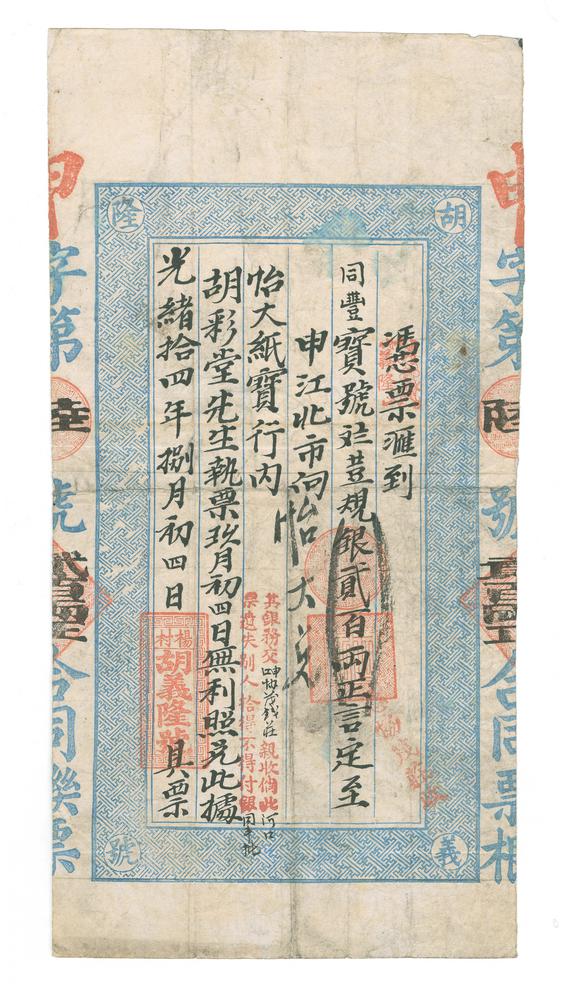 憑票滙到
同豐寶號豆規銀貳百兩正言定至
申江北市向怡大兑
怡大紙寶行內
胡彩堂先生執票玖月初四日無利照兑此據
光緒拾四年捌月初四日 具票
其銀務交 親收倘此
票遺失別人拾得不得付銀
楊村
胡義隆號
胡
隆
義
號
申字第陸號 合同票根
申字第陸號 合同聯票